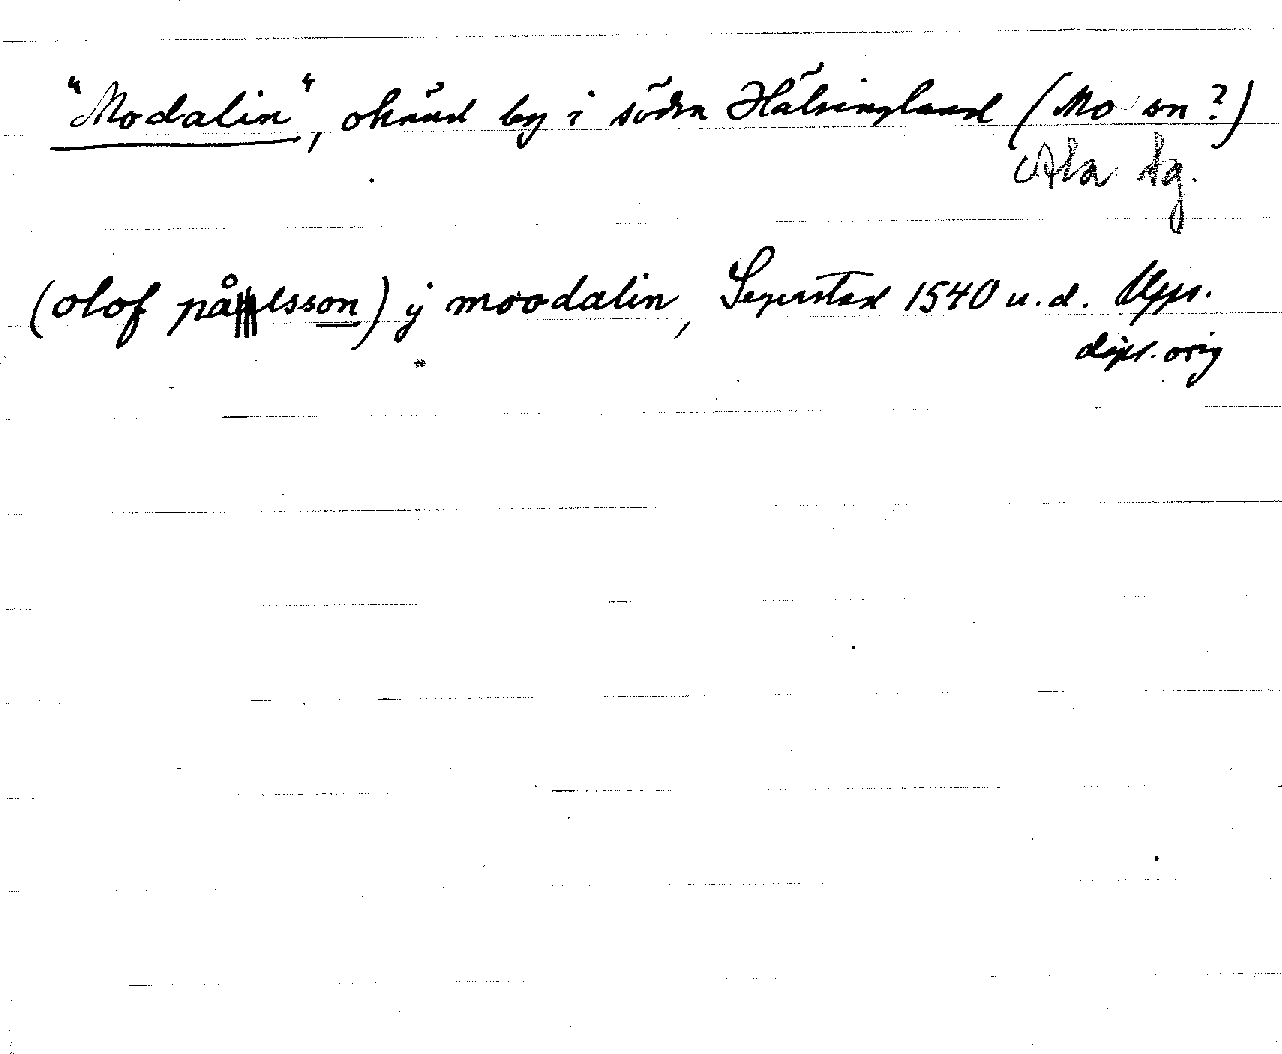 "Modalin", okänd by i södra Hälsingland (Mo sn?)
Ala hg.
(olof pålsson) ÿ moodalin, Segerstad 1540 u.d. Upps.
dipl. orig